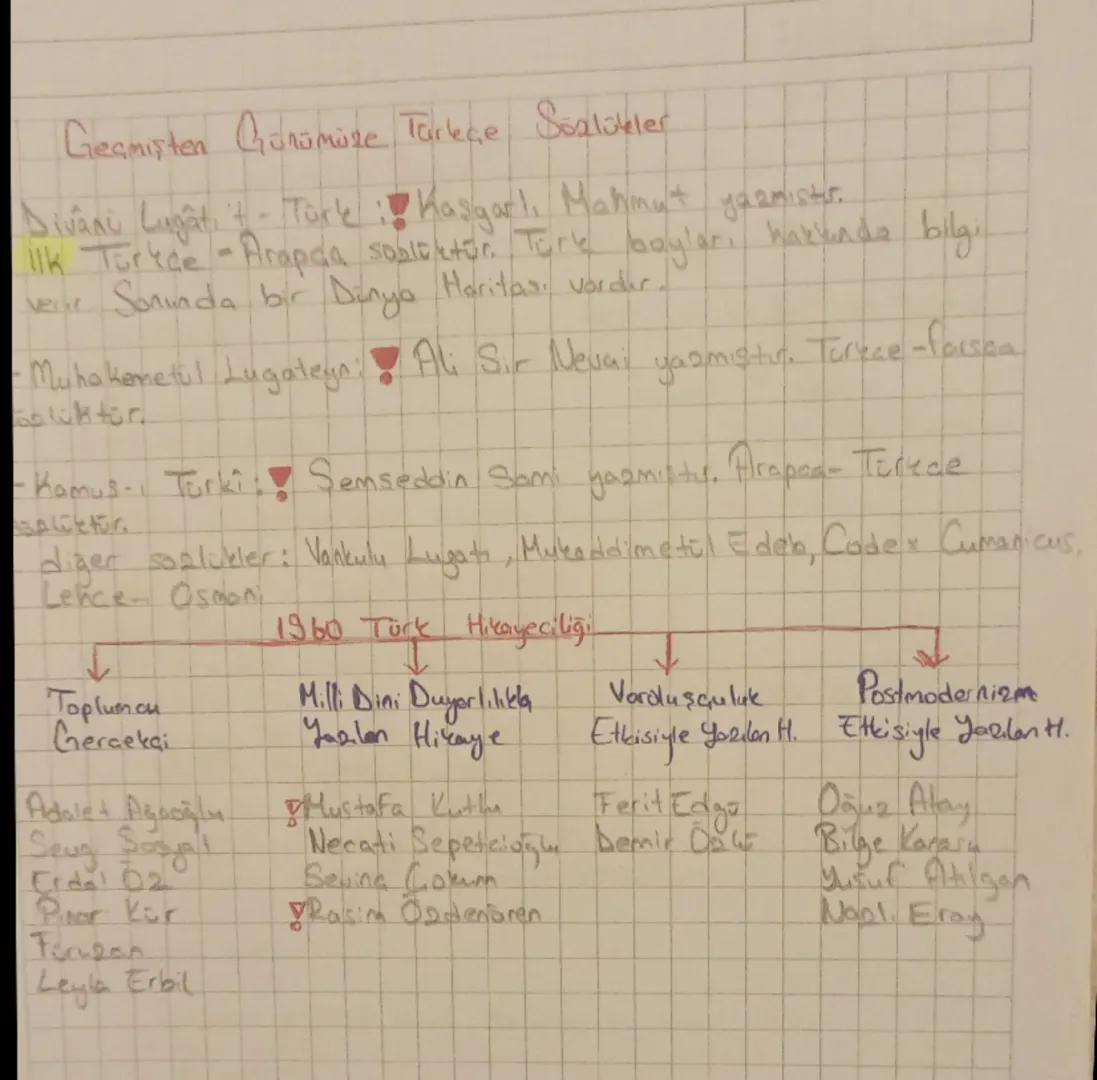 Geçmişten Günümüze Türkçe Sözlükler
Divânü Lugâti't-Türk : Kaşgarlı Mahmut yazmıştır.
İlk Türkçe - Arapça sözlüktür. Türk boyları hakkında bilgi
verir Sonunda bir Dünya Haritası vardır.
- Muhakemetül Lugateyn: Ali Şir Nevai yazmıştır. Türkçe - farsça
sözlüktür.
- Kamus-ı Türkî: Şemseddin Sami yazmıştır. Arapça - Türkçe
sözlüktür.
diğer sözlükler: Vankulu Lugatı, Mukaddimetül Edeb, Codex Cumanicus,
Lehce-i Osmani
1960 Türk Hikayeciliği
Toplumcu Gerçekçi
Milli Dini Duyarlılıkla Yazılan Hikaye
Varoluşçuluk Etkisiyle Yazılan H.
Postmodernizm Etkisiyle Yazılan H.
Adalet Ağaoğlu Mustafa Kutlu Ferit Edgü Oğuz Atay
Sevgi Soysal Necati Sepetcioğlu Demir Özlü Bilge Karasu
Erdal Öz Sevinç Çokum Yusuf Atılgan
Pınar Kür Rasim Özdenören Nazlı Eray
Füruzan
Leyla Erbil